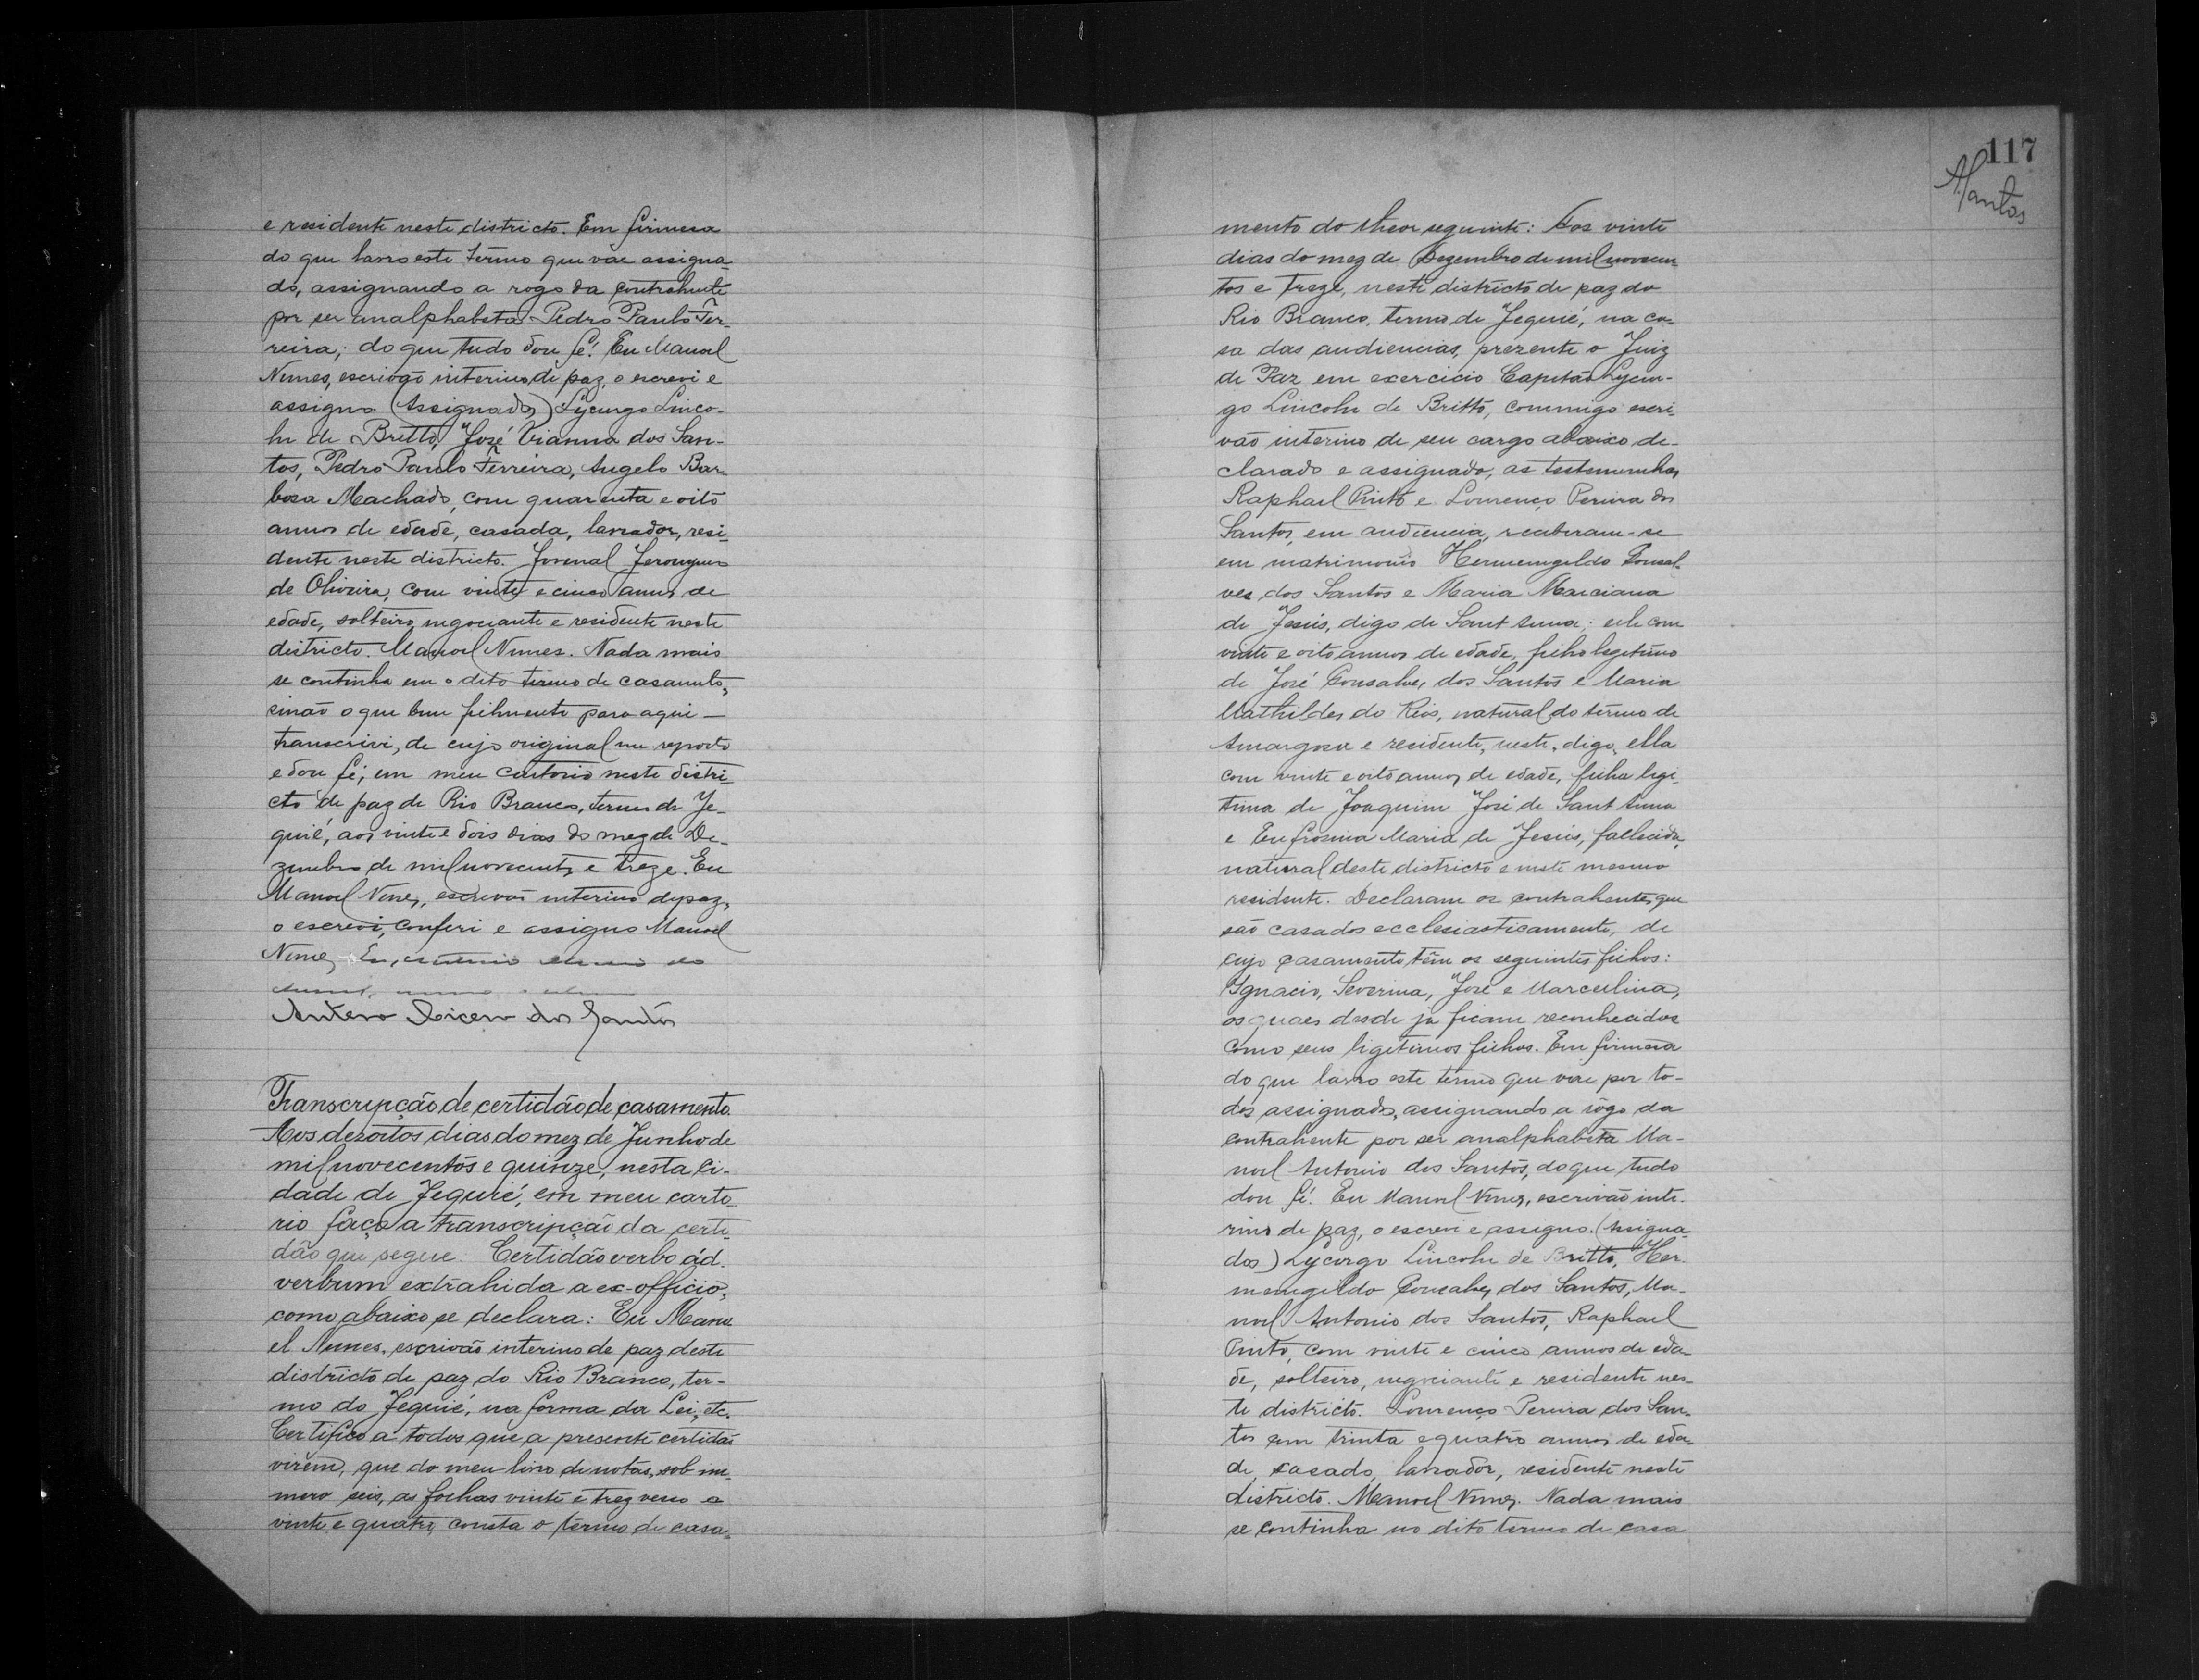 e residente neste districto. Em firmesa
do que lavro este termo que vae assigna-
do, assignando a rogo da contrahente
por ser analphabeta Pedro Paulo Fer-
reira; do que tudo dou fé. Eu Manoel
Nunes, escrivão interino de paz, o escrevi e
assigno (Assignados) Lycurgo Linco-
ln de Britto, José Vianna dos San-
tos, Pedro Paulo Ferreira, Angelo Bar-
bosa Machado, com quarenta e oito
annos de edade, casada, lavrador, resi-
dente neste districto. Jovenal Jeronymo
de Oliveira, com vinte e cinco annos de
edade, solteiro, negociante e residente neste
districto. Manoel Nunes. Nada mais
se continha em o dito termo de casamento,
sinão o que bem fielmente para aqui —
transcrivi, de cujo original me reporto
e dou fé; em meu cartorio neste distri-
cto de paz de Rio Branco, termo de Je-
quié, aos vinte e dois dias do mez de De-
zembro de mil novecentos e treze. Eu
Manoel Nunes, escrivão interino de paz,
o escrevi, conferi e assigno Manoel
Nunes. Eu,
Antero Cicero dos Santos
Transcripção de certidão de casamento
Aos dezoitos dias do mez de Junho de
mil novecentos e quinze, nesta ci-
dade de Jequié, em meu carto-
rio faço a transcripção da certi-
dão que segue. Certidão verbo ad.
verbum extrahida a ex-officio,
como abaixo se declara: Eu Mano
el Nunes, escrivão interino de paz deste
districto de paz do Rio Branco, ter-
mo do Jequié, na forma da Lei, etc.
Certifico a todos que a presente certidão
virem, que do meu livro de notas, sob nu-
mero seis, as folhas vinte e trez verso a
vinte e quatro, consta o termo de casa-
117
ASantos
mento do theor seguinte: Aos vinte
dias do mez de Dezembro de mil novecen-
tos e treze, neste districto de paz do
Rio Branco, termo de Jequié, na ca-
sa das audiencias, prezente o Juiz
de Paz em exercicio Capitão Lycur-
go Lincoln de Britto, commigo escri-
vão interino de seu cargo abaixo de-
clarado e assignado, as testemunhas
Raphael Pinto e Lourenço Pereira dos
Santos, em audiencia, receberam-se
em matrimonio Hermenegildo Gonsal-
ves dos Santos e Maria Marciana
de Jesus, digo de Sant Anna; elle com
vinte e oito annos de edade, filho legetimo
de José Gonsalves dos Santos e Maria
Mathildes do Rios, natural do termo de
Amargosa e residente, neste, digo, ella
com vinte e oito annos de edade, filha legi-
tima de Joaquim José de Sant Anna
e Eufrosina Maria de Jesus, fallecida,
natural deste districto e neste mesmo
residente. Declaram os contrahentes que
são casados ecclesiasticamente, de
cujo casamento têm os seguintes filhos:
Ignacio, Severina, José e Marculina,
os quaes desde já ficam reconhecidos
como seus ligetimos filhos. Em firmesa
do que lavro este termo que vae por to-
dos assignado, assignando a rogo da
contrahente por ser analphabeta Ma-
noel Antonio dos Santos, do que tudo
dou fé. Eu Manoel Nunes, escrivão inte-
rino de paz, o escrevi e assigno. (Assigna-
dos) Lycurgo Lincoln de Britto, Her-
menegildo Gonsalves dos Santos, Ma-
noel Antonio dos Santos, Raphael
Pinto, com vinte e cinco annos de eda-
de, solteiro, negociante e residente nes-
te districto. Lourenço Pereira dos San-
tos com trinta e quatro annos de eda-
de, casado, lavrador, residente neste
districto. Manoel Nunes. Nada mais
se continha no dito termo de casa